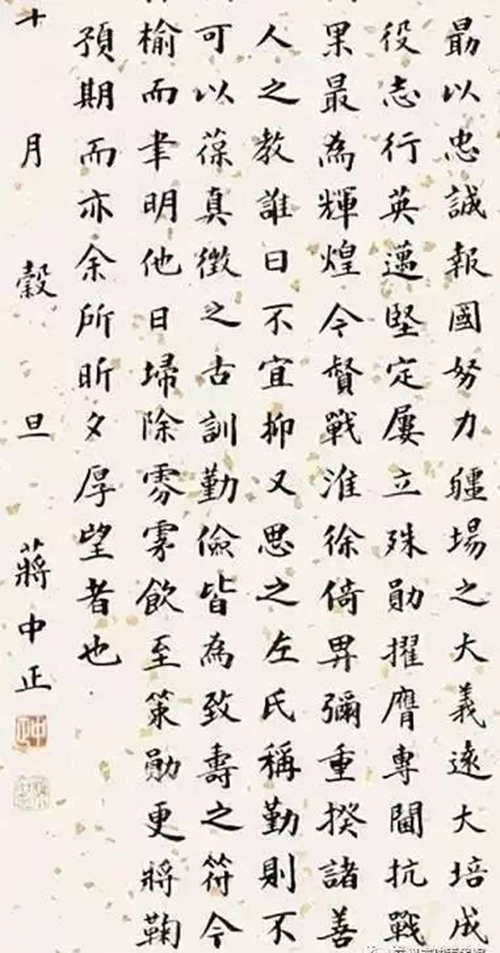 勗以忠誠報國努力疆場之大義遠大培成
役志行英邁堅定屢立殊勛擢膺專閫抗戰
果最為輝煌今督戰淮徐倚畀彌重揆諸善
人之教誰曰不宜抑又思之左氏稱勤則不
可以葆真徵之古訓勤儉皆為致壽之符今
榆而聿明他日埽除雰雺飲至策勛更將鞠
預期而亦余所昕夕厚望者也
十月穀旦 蔣中正